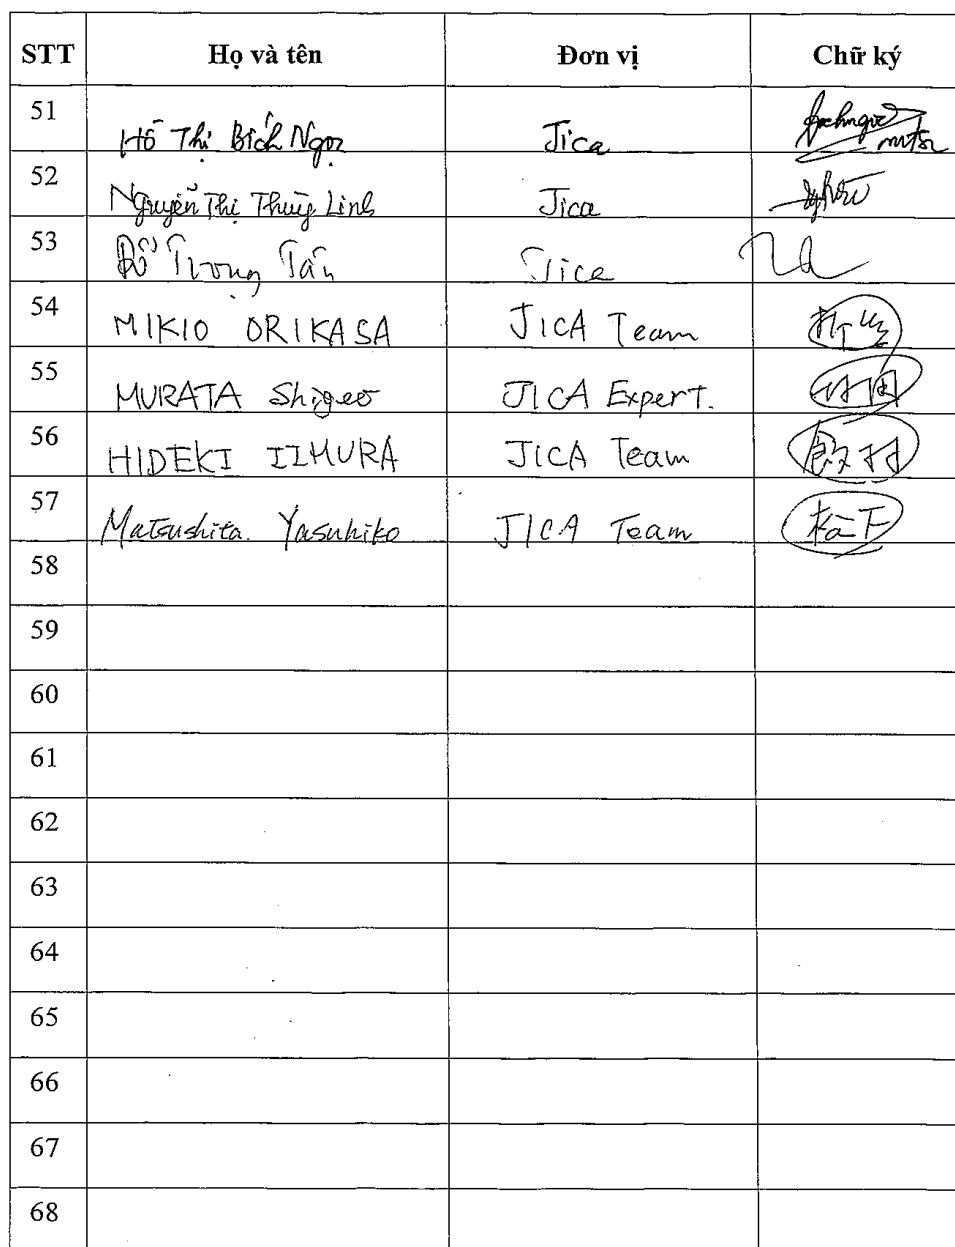 STT Họ và tên Đơn vị Chữ ký
51 Hồ Thị Bích Ngọc Jica
52 Nguyễn Thị Thùy Linh Jica
53 Đỗ Trọng Tấn Jica
54 MIKIO ORIKASA JICA Team
55 MURATA Shigeo JICA Expert. 村田
56 HIDEKI IIMURA JICA Team 飯村
57 Matsushita Yasuhiko JICA Team 松下
58
59
60
61
62
63
64
65
66
67
68